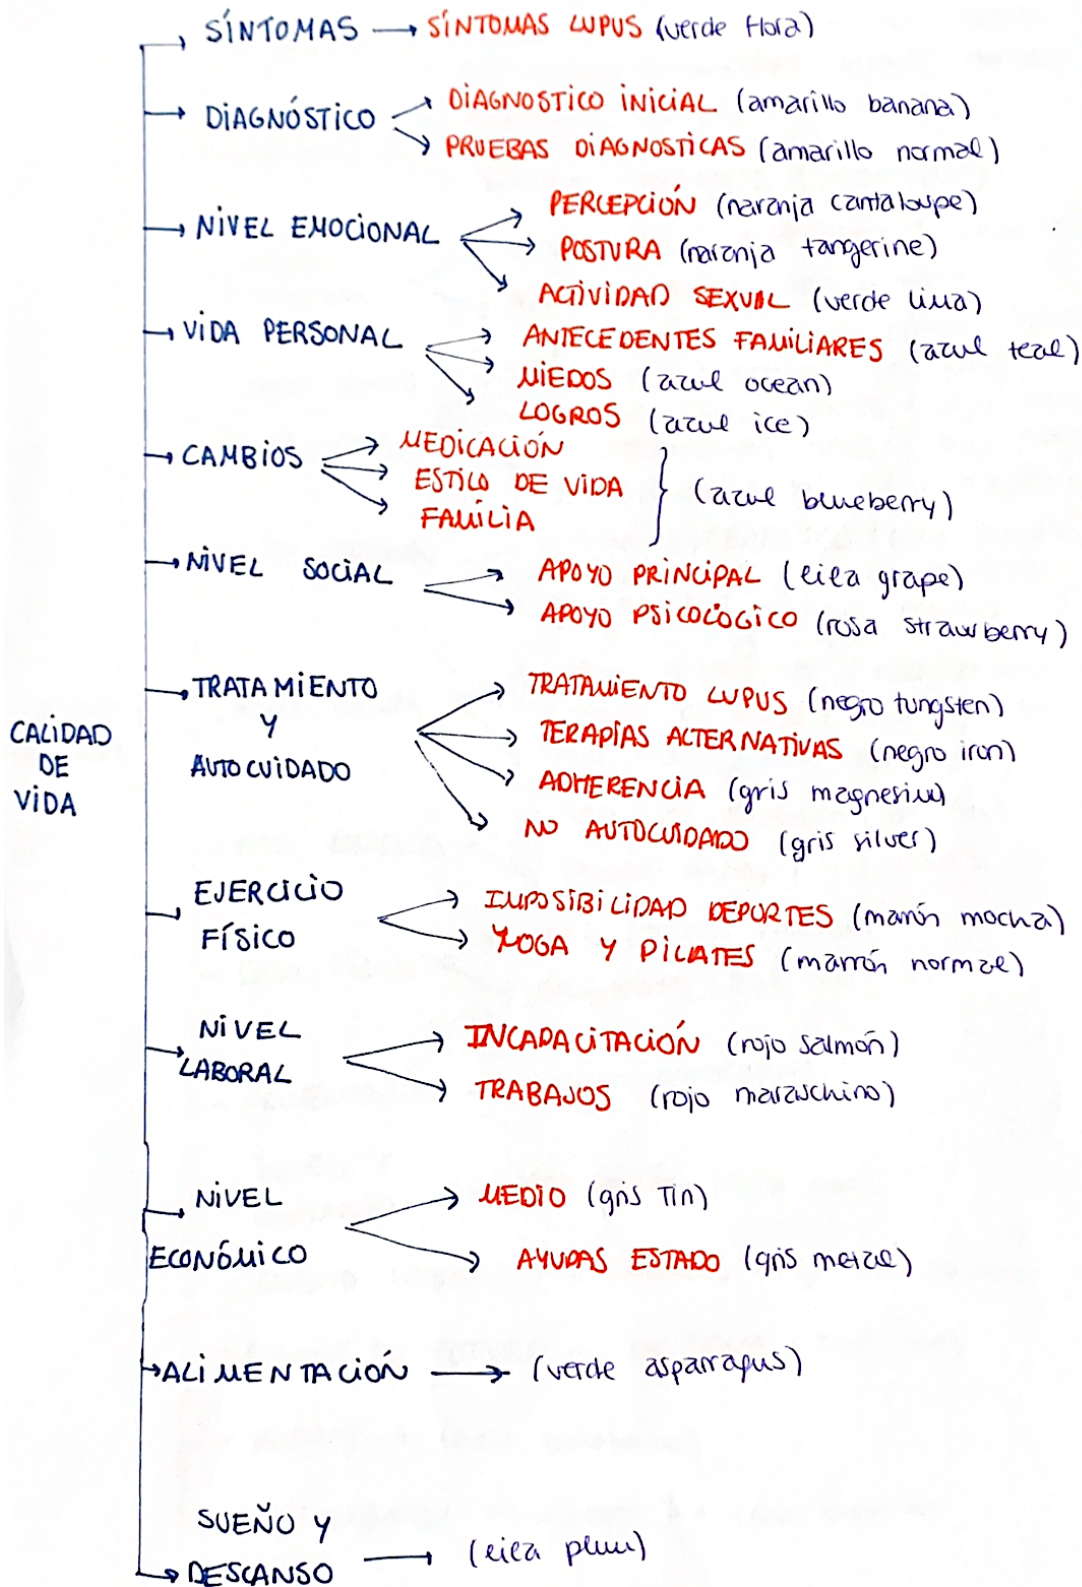 SÍNTOMAS → SÍNTOMAS LUPUS (verde flora)
DIAGNÓSTICO
DIAGNOSTICO INICIAL (amarillo banana)
PRUEBAS DIAGNOSTICAS (amarillo normal)
NIVEL EMOCIONAL
PERCEPCIÓN (naranja cantaloupe)
POSTURA (naranja tangerine)
ACTIVIDAD SEXUAL (verde lima)
VIDA PERSONAL
ANTECEDENTES FAMILIARES (azul teal)
MIEDOS (azul ocean)
LOGROS (azul ice)
CAMBIOS
MEDICACIÓN
ESTILO DE VIDA
FAMILIA
(azul blueberry)
NIVEL SOCIAL
APOYO PRINCIPAL (lila grape)
APOYO PSICOLÓGICO (rosa strawberry)
CALIDAD
DE
VIDA
TRATAMIENTO
Y
AUTOCUIDADO
TRATAMIENTO LUPUS (negro tungsten)
TERAPÍAS ALTERNATIVAS (negro iron)
ADHERENCIA (gris magnesium)
NO AUTOCUIDADO (gris silver)
EJERCICIO
FÍSICO
IMPOSIBILIDAD DEPORTES (marrón mocha)
YOGA Y PILATES (marrón normal)
NIVEL
LABORAL
INCAPACITACIÓN (rojo salmón)
TRABAJOS (rojo maraschino)
NIVEL
ECONÓMICO
MEDIO (gris Tin)
AYUDAS ESTADO (gris metal)
ALIMENTACIÓN → (verde asparragus)
SUEÑO Y
DESCANSO → (lila plum)